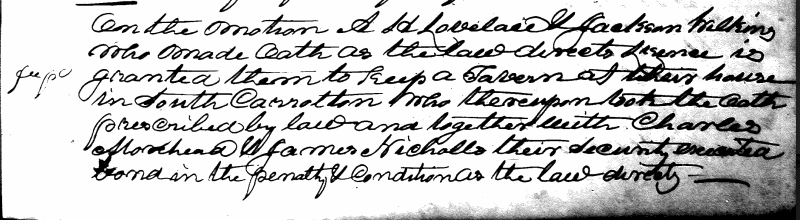 On the motion A H Lovelace & Jackson Wilkins
who made Oath as the law directs lisence is
granted them to keep a Tavern at their house
in South Carrollton who thereupon took the Oath
prescribed by law and together with Charles
Morehead & James Nicholls their security executed
bond in the penalty & Condition as the law directs